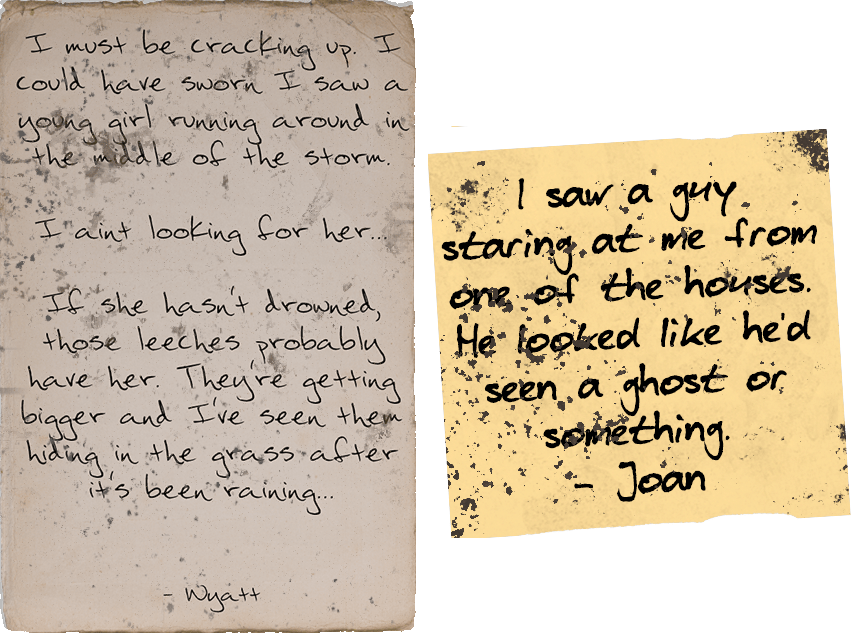 I must be cracking up. I
could have sworn I saw a
young girl running around in
the middle of the storm.
I aint looking for her...
If she hasn't drowned,
those leeches probably
have her. They're getting
bigger and I've seen them
hiding in the grass after
it's been raining...
- Wyatt
I saw a guy
staring at me from
one of the houses.
He looked like he'd
seen a ghost or
something.
- Joan